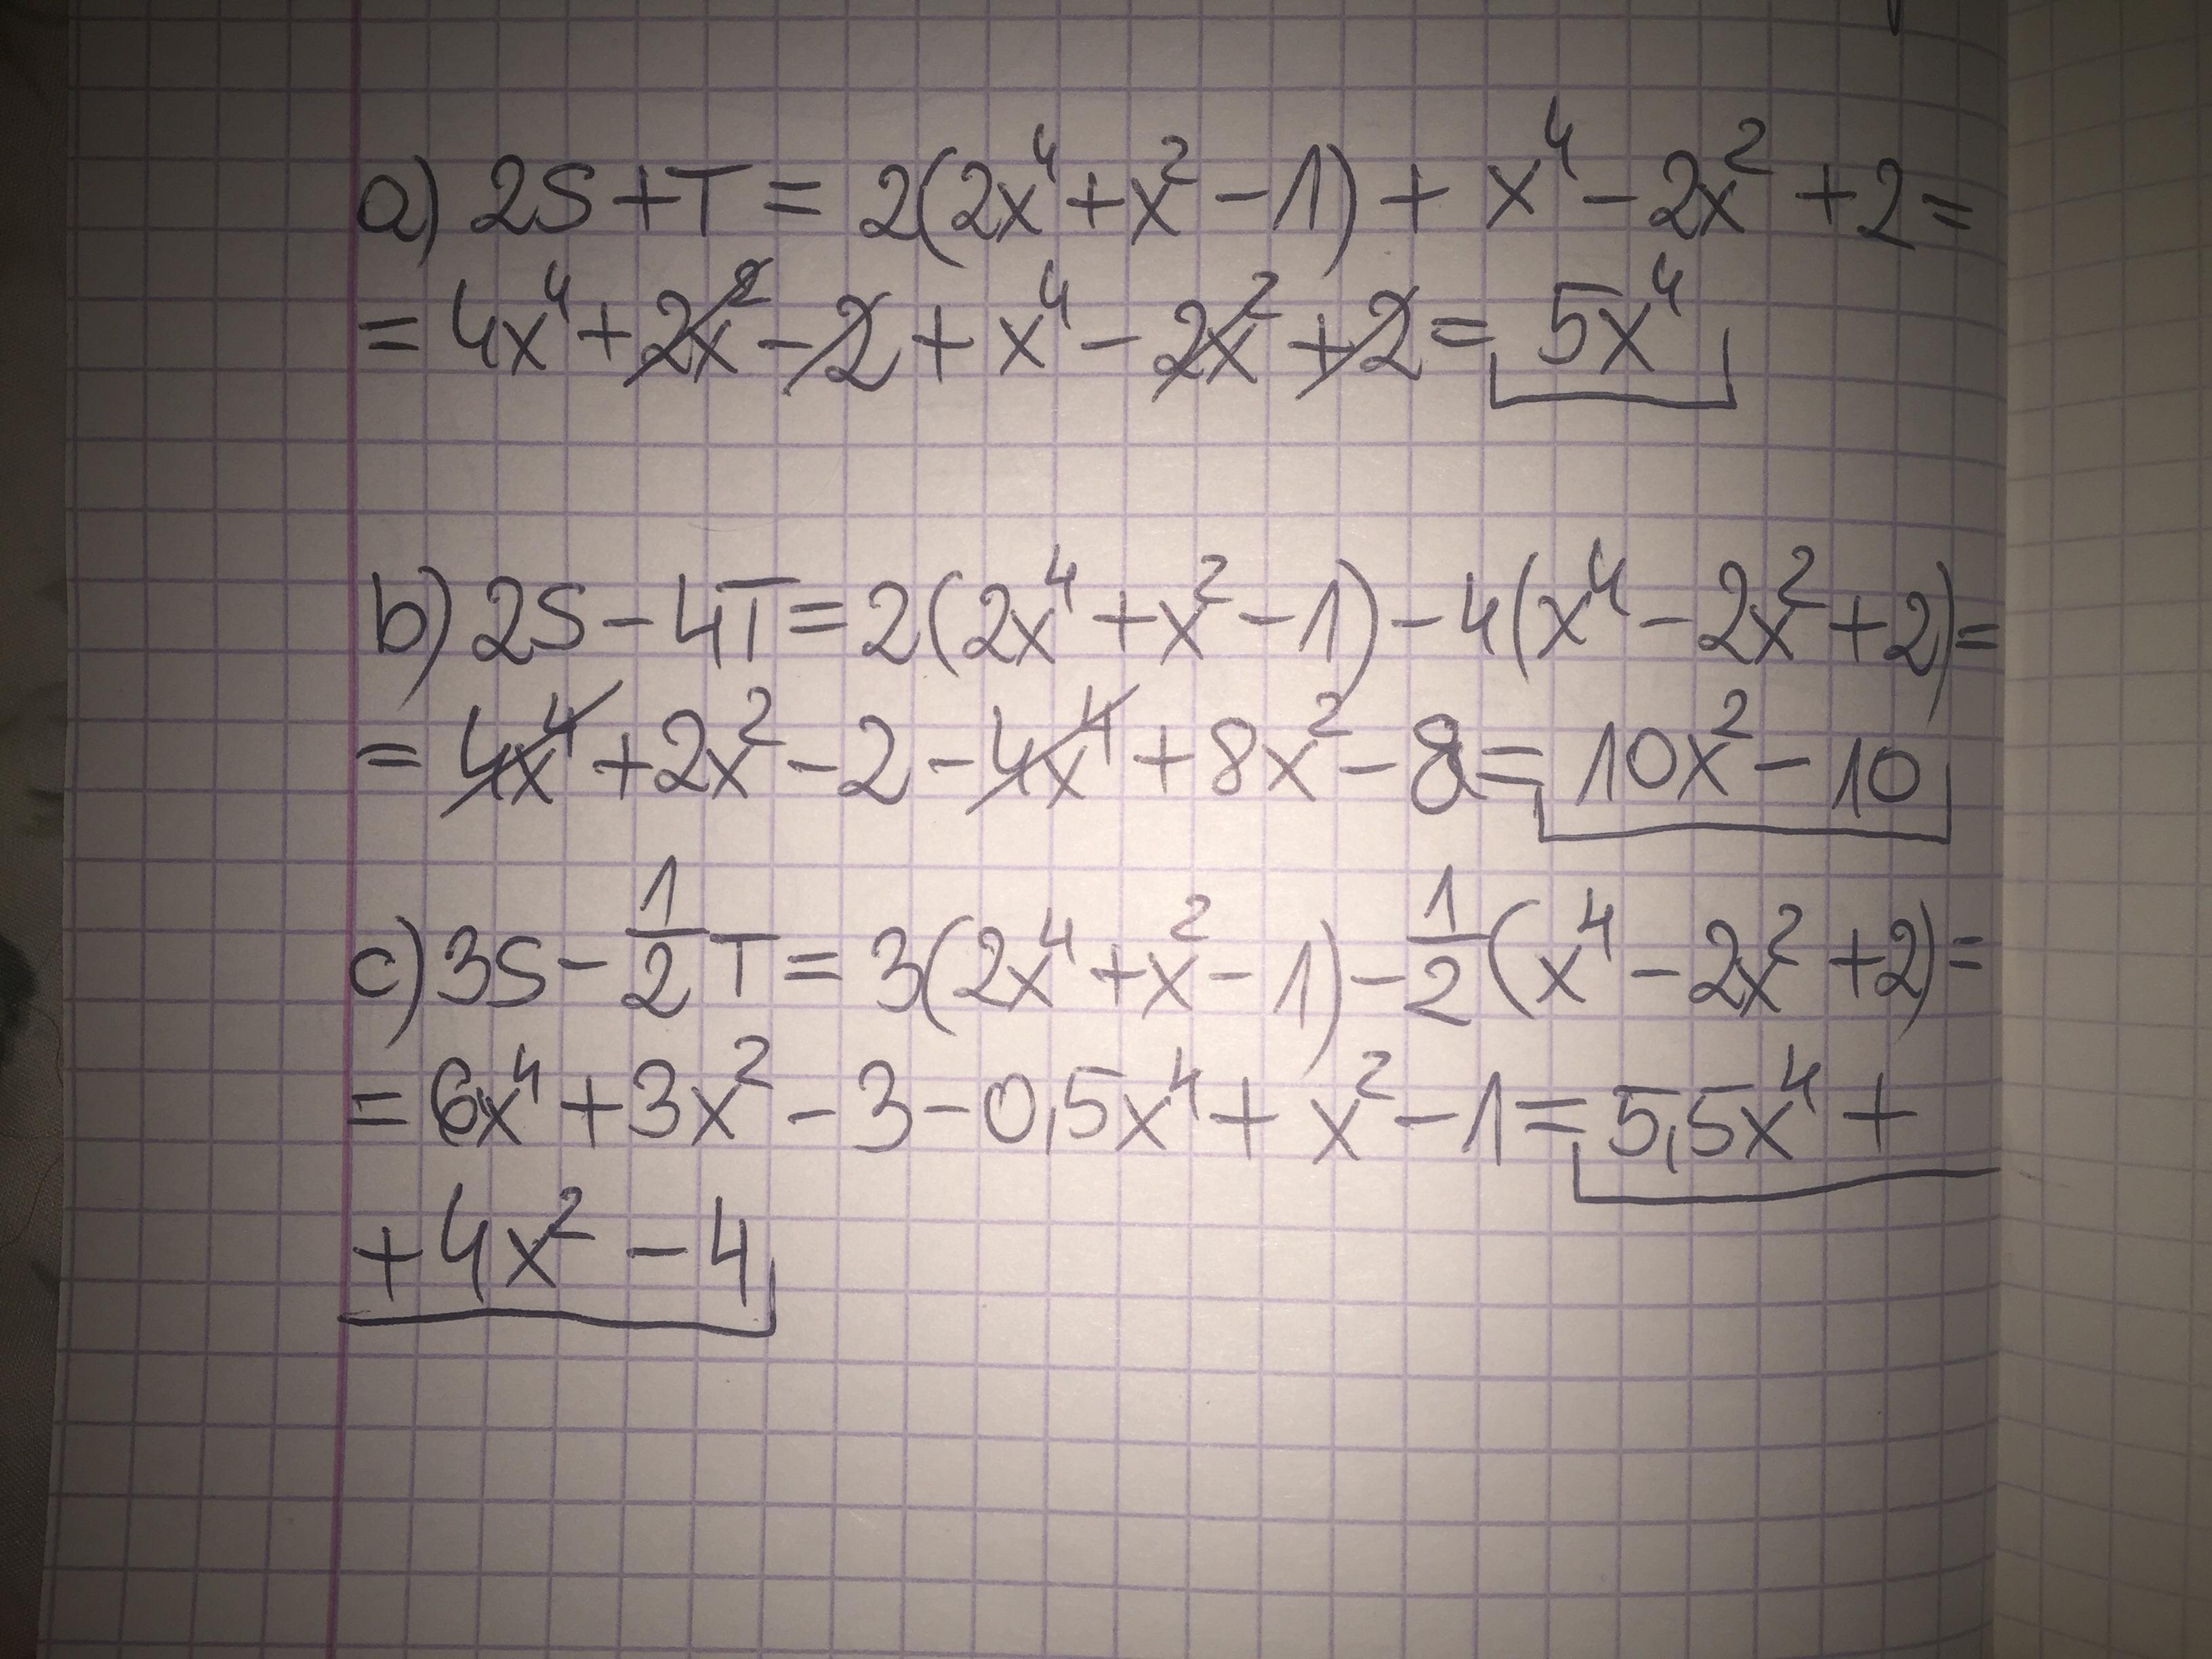 a) 2S + T = 2(2x⁴ + x² - 1) + x⁴ - 2x² + 2 =
= 4x⁴ + 2x² - 2 + x⁴ - 2x² + 2 = 5x⁴
b) 2S - 4T = 2(2x⁴ + x² - 1) - 4(x⁴ - 2x² + 2) =
= 4x⁴ + 2x² - 2 - 4x⁴ + 8x² - 8 = 10x² - 10
c) 3S - 1/2 T = 3(2x⁴ + x² - 1) - 1/2 (x⁴ - 2x² + 2) =
= 6x⁴ + 3x² - 3 - 0,5x⁴ + x² - 1 = 5,5x⁴ +
+ 4x² - 4